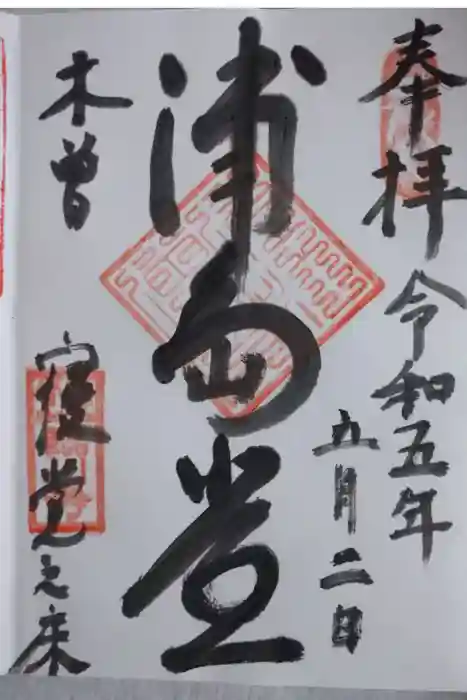 奉拝
令和五年
五月二日
浦島堂
木曽
寝覚之床